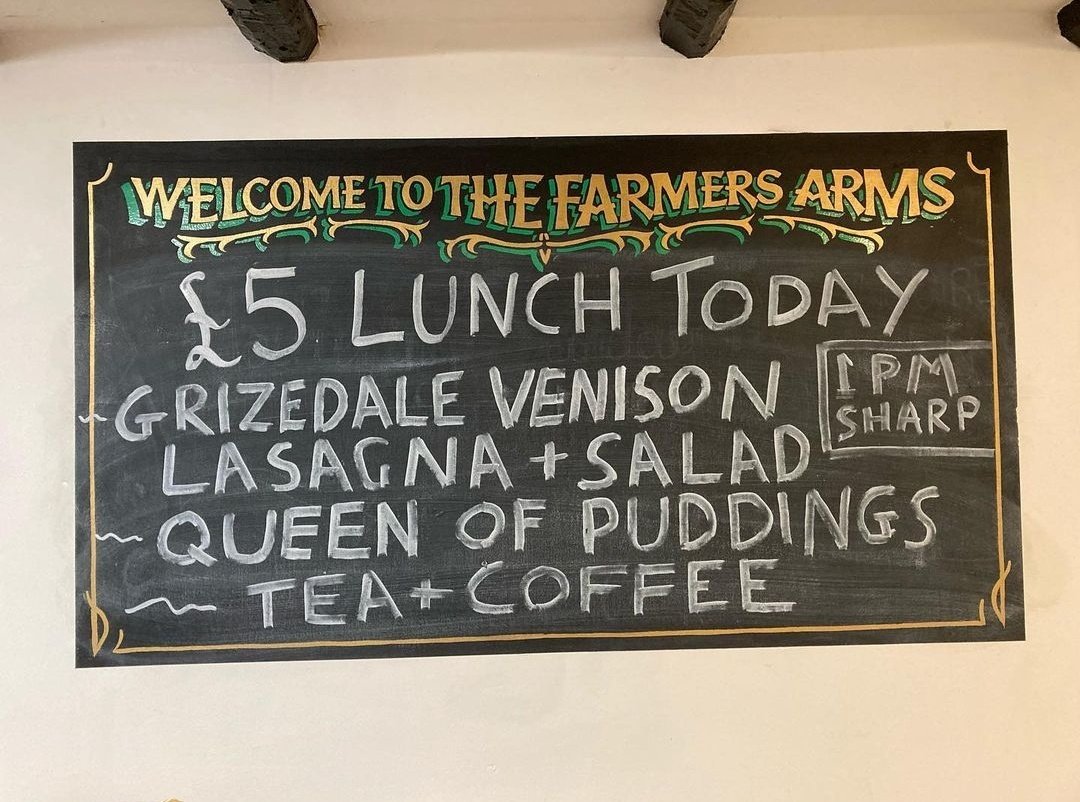 WELCOME TO THE FARMERS ARMS
£5 LUNCH TODAY
1PM
SHARP
GRIZEDALE VENISON
LASAGNA + SALAD
QUEEN OF PUDDINGS
TEA + COFFEE